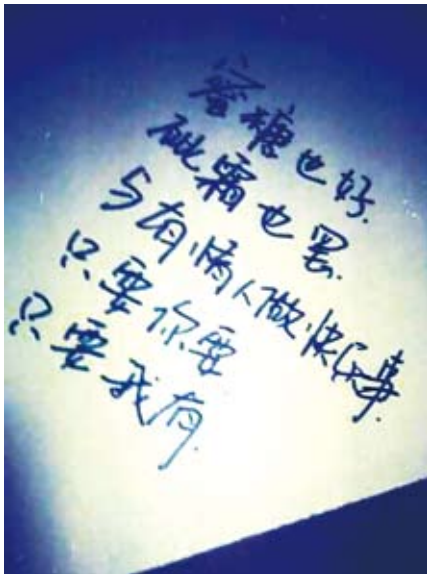 蜜糖也好.
砒霜也罢.
与有情人做快乐事.
只要你要
只要我有.